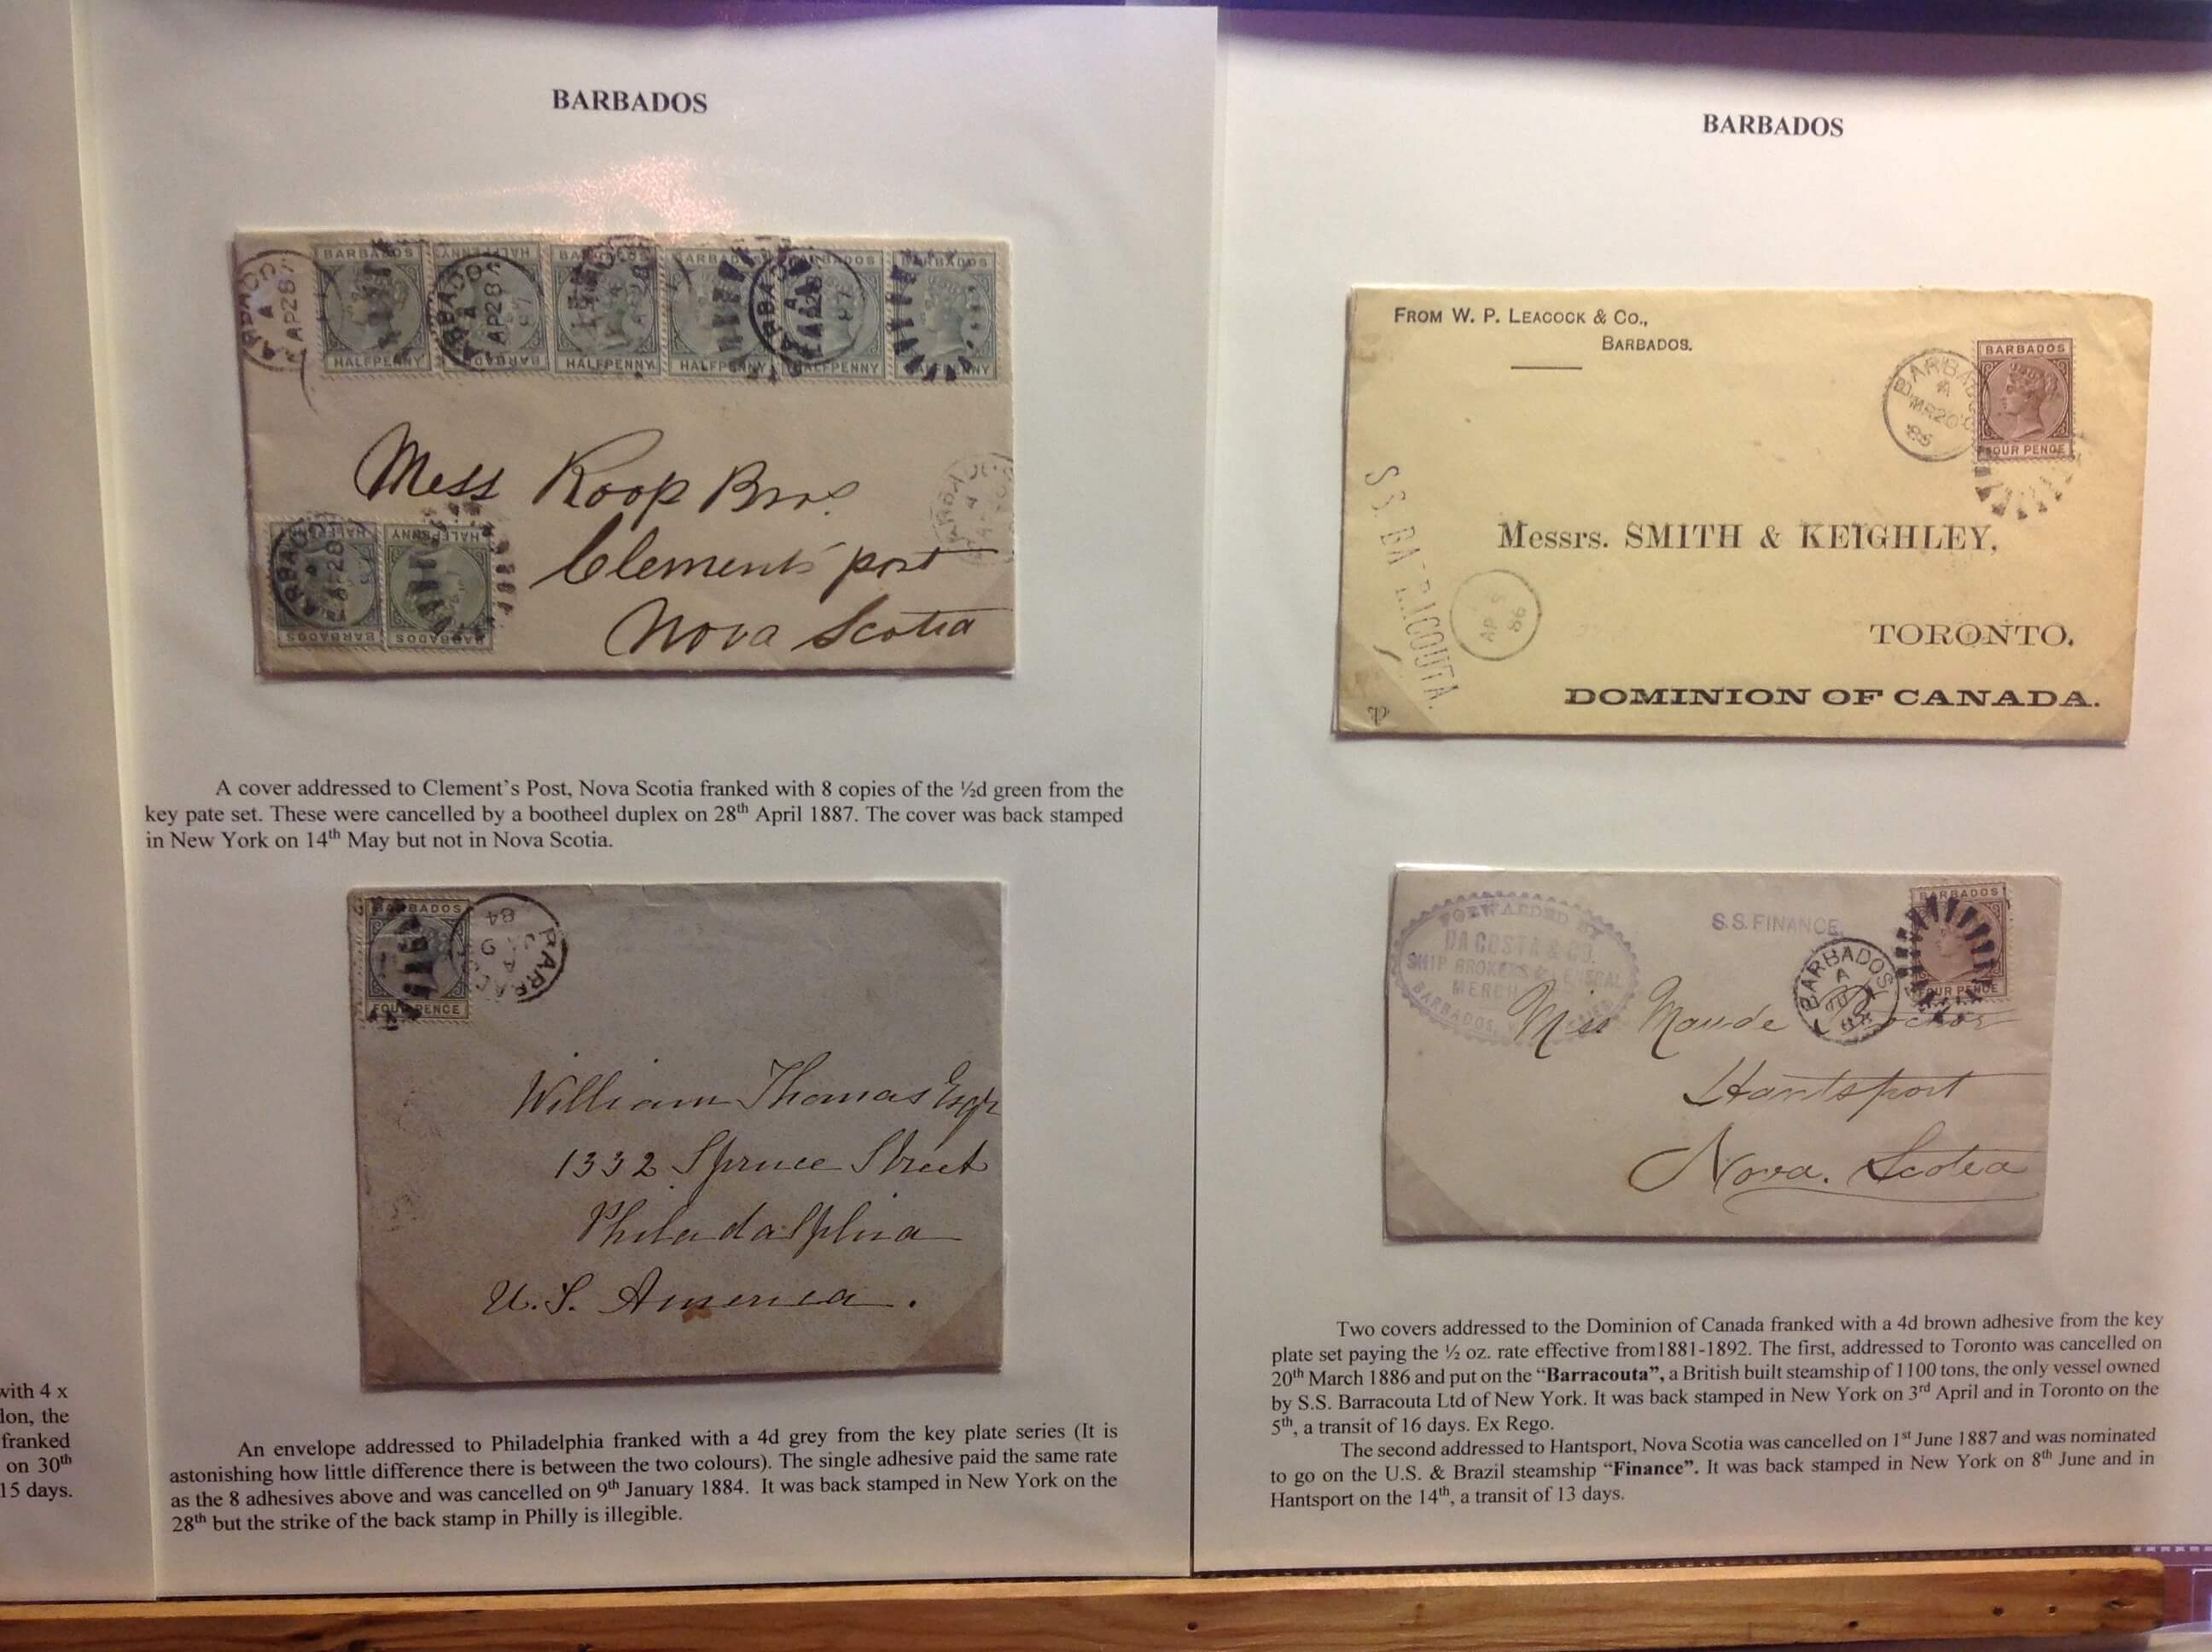 BARBADOS
BARBADOS HALFPENNY BARBADOS HALFPENNY BARBADOS HALFPENNY BARBADOS HALFPENNY BARBADOS HALFPENNY BARBADOS HALFPENNY
A
AP 28
87
Mess Roop Bros.
Clements port
Nova Scotia
HALFPENNY BARBADOS HALFPENNY BARBADOS
A cover addressed to Clement's Post, Nova Scotia franked with 8 copies of the ½d green from the
key pate set. These were cancelled by a bootheel duplex on 28th April 1887. The cover was back stamped
in New York on 14th May but not in Nova Scotia.
BARBADOS
FOUR PENCE
84
William Thomas Esqr
1332 Spruce Street
Philadalphia
U.S. America.
An envelope addressed to Philadelphia franked with a 4d grey from the key plate series (It is
astonishing how little difference there is between the two colours). The single adhesive paid the same rate
as the 8 adhesives above and was cancelled on 9th January 1884. It was back stamped in New York on the
28th but the strike of the back stamp in Philly is illegible.
with 4 x
the
franked
on 30th
15 days.
BARBADOS
FROM W. P. LEACOCK & CO.,
BARBADOS.
BARBADOS
FOUR PENCE
A
MR 20
86
S.S. BARRICOUTA.
AP 5
86
Messrs. SMITH & KEIGHLEY,
TORONTO.
DOMINION OF CANADA.
FORWARDED BY
DA COSTA & CO.
SHIP BROKERS & GENERAL
MERCH
BARBADOS,
S.S. FINANCE
BARBADOS
A
BARBADOS
FOUR PENCE
Miss Maude
Hantsport
Nova. Scotia
Two covers addressed to the Dominion of Canada franked with a 4d brown adhesive from the key
plate set paying the ½ oz. rate effective from1881-1892. The first, addressed to Toronto was cancelled on
20th March 1886 and put on the “Barracouta”, a British built steamship of 1100 tons, the only vessel owned
by S.S. Barracouta Ltd of New York. It was back stamped in New York on 3rd April and in Toronto on the
5th, a transit of 16 days. Ex Rego.
The second addressed to Hantsport, Nova Scotia was cancelled on 1st June 1887 and was nominated
to go on the U.S. & Brazil steamship “Finance”. It was back stamped in New York on 8th June and in
Hantsport on the 14th, a transit of 13 days.